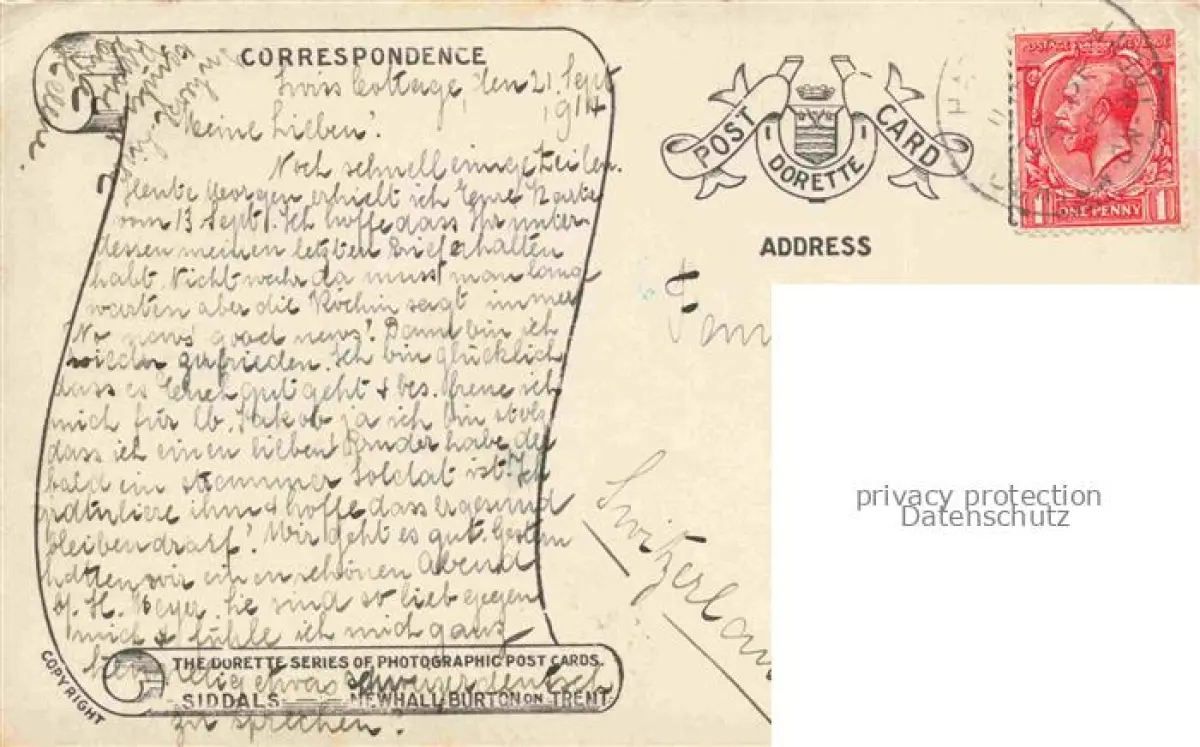 CORRESPONDENCE
Swiss Cottage, den 21. Sept
1914
Meine Lieben!
Noch schnell einige Zeilen.
Heute Morgen erhielt ich Eure Karte
vom 13 Sept. Ich hoffe dass Ihr unter-
dessen meinen letzten Brief erhalten
habt. Nicht wahr da muss man lang
warten aber die Köchin sagt immer
No news good news! Dann bin ich
wieder zufrieden. Ich bin glücklich
dass es Euch gut geht & bes. freue ich
mich für lb. Jakob ja ich bin stolz
dass ich einen lieben Bruder habe der
bald ein strammer Soldat ist. Ich
gratuliere ihm & hoffe dass er gesund
bleiben darf! Mir geht es gut. Gestern
hatten wir einen schönen Abend
b. H. Meyer. Sie sind so lieb gegen
mich & fühle ich mich ganz
etwas schweizerdeutsch
zu sprechen!
THE DORETTE SERIES OF PHOTOGRAPHIC POST CARDS.
SIDDALS NEWHALL, BURTON ON TRENT
COPYRIGHT
POST CARD
DORETTE
ADDRESS
POSTAGE REVENUE
1 ONE PENNY 1
Fam
Switzerland
privacy protection
Datenschutz